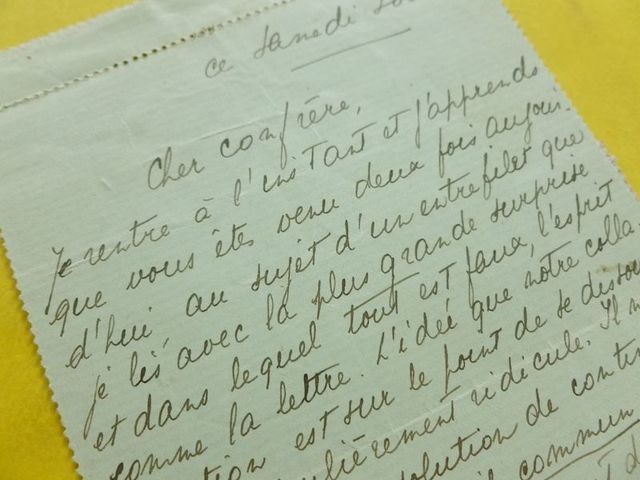 ce Samedi
Cher confrère,
Je rentre à l'instant et j'apprends
que vous êtes venu deux fois aujour-
d'hui au sujet d'un entrefilet que
je lis, avec la plus grande surprise
et dans lequel tout est faux, l'esprit
comme la lettre. L'idée que notre colla-
tion est sur le point de se dissou
lièrement ridicule. Il n
solution de contin
commun